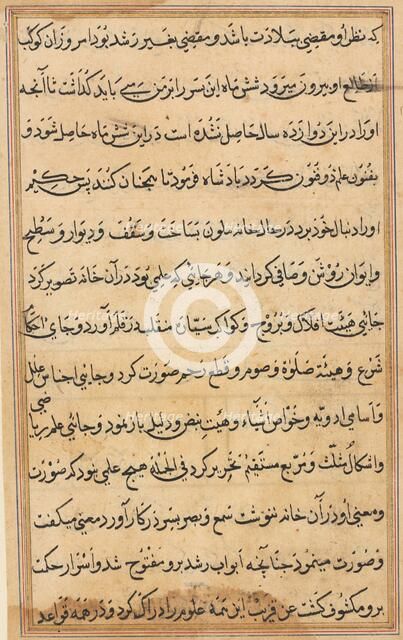 که نظر او مقتضی بلادت باشد و مقتضی بغیر رشد بود امروز آن کوکب
از طالع او بیرون میرود شش ماه این سر را بر من می باید گذاشت تا آنچه
او را در این دوازده سال حاصل نشده است در این شش ماه حاصل شود و
بفنون علم ذوفنون گردد بادشاه فرمود تا همچنان کنند پس حکیم
او را دنبال خود برد در حال خانه ساخت و سقف و دیوار و سطح
و ایوان روشن و صافی گردانید و هر جائی که علمی بود در آن خانه تصویر کرد
جائی هیئت افلاک و بروج و کواکب سیاره در قلم آورد و جای احکام
شرع و هیئة صلوة و صوم و قطع رحم صورت کرد و جائی اجناس علل
و اسامی ادویه و خواص اشیاء و هیئت نبض و دلیل باز نمود و جائی علم ریاضی
و اشکال مثلث و مربع مستقیم تحریر کرد فی الجمله هیچ علمی نبود که صورت
و معنی او در آن خانه ننوشت سمع و بصر پسر در کار آورد معنی میگفت
و صورت مینمود چنانچه ابواب رشد برو مفتوح شد و اسرار حکمت
برو مکشوف گشت عن قریب این همه علوم را ادراک کرد و در همه قواعد
Heritage Images